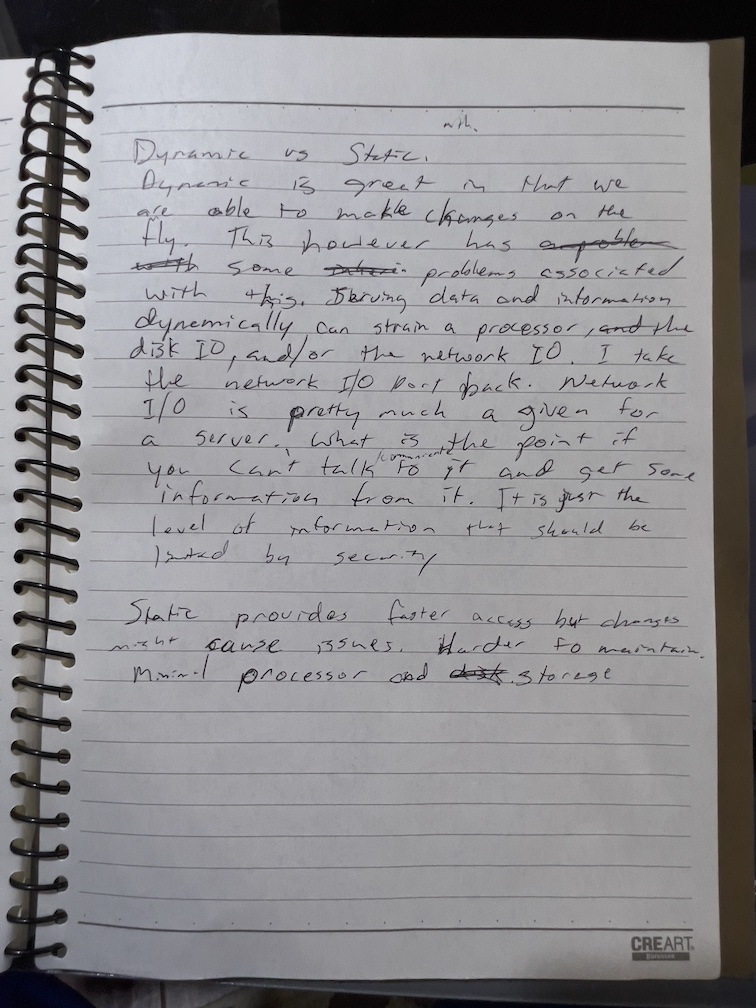 Dynamic vs Static.
Dynamic is great in that we
are able to make changes on the
fly. This however has a problem
with some problems associated
with this. Serving data and information
dynamically can strain a processor, and the
disk IO, and/or the network IO. I take
the network I/O part back. Network
I/O is pretty much a given for
a server. What is the point if
communicate
you can't talk to it and get some
information from it. It is just the
level of information that should be
limited by security
Static provides faster access but changes
might cause issues. Harder to maintain.
Minimal processor and disk storage
CREART